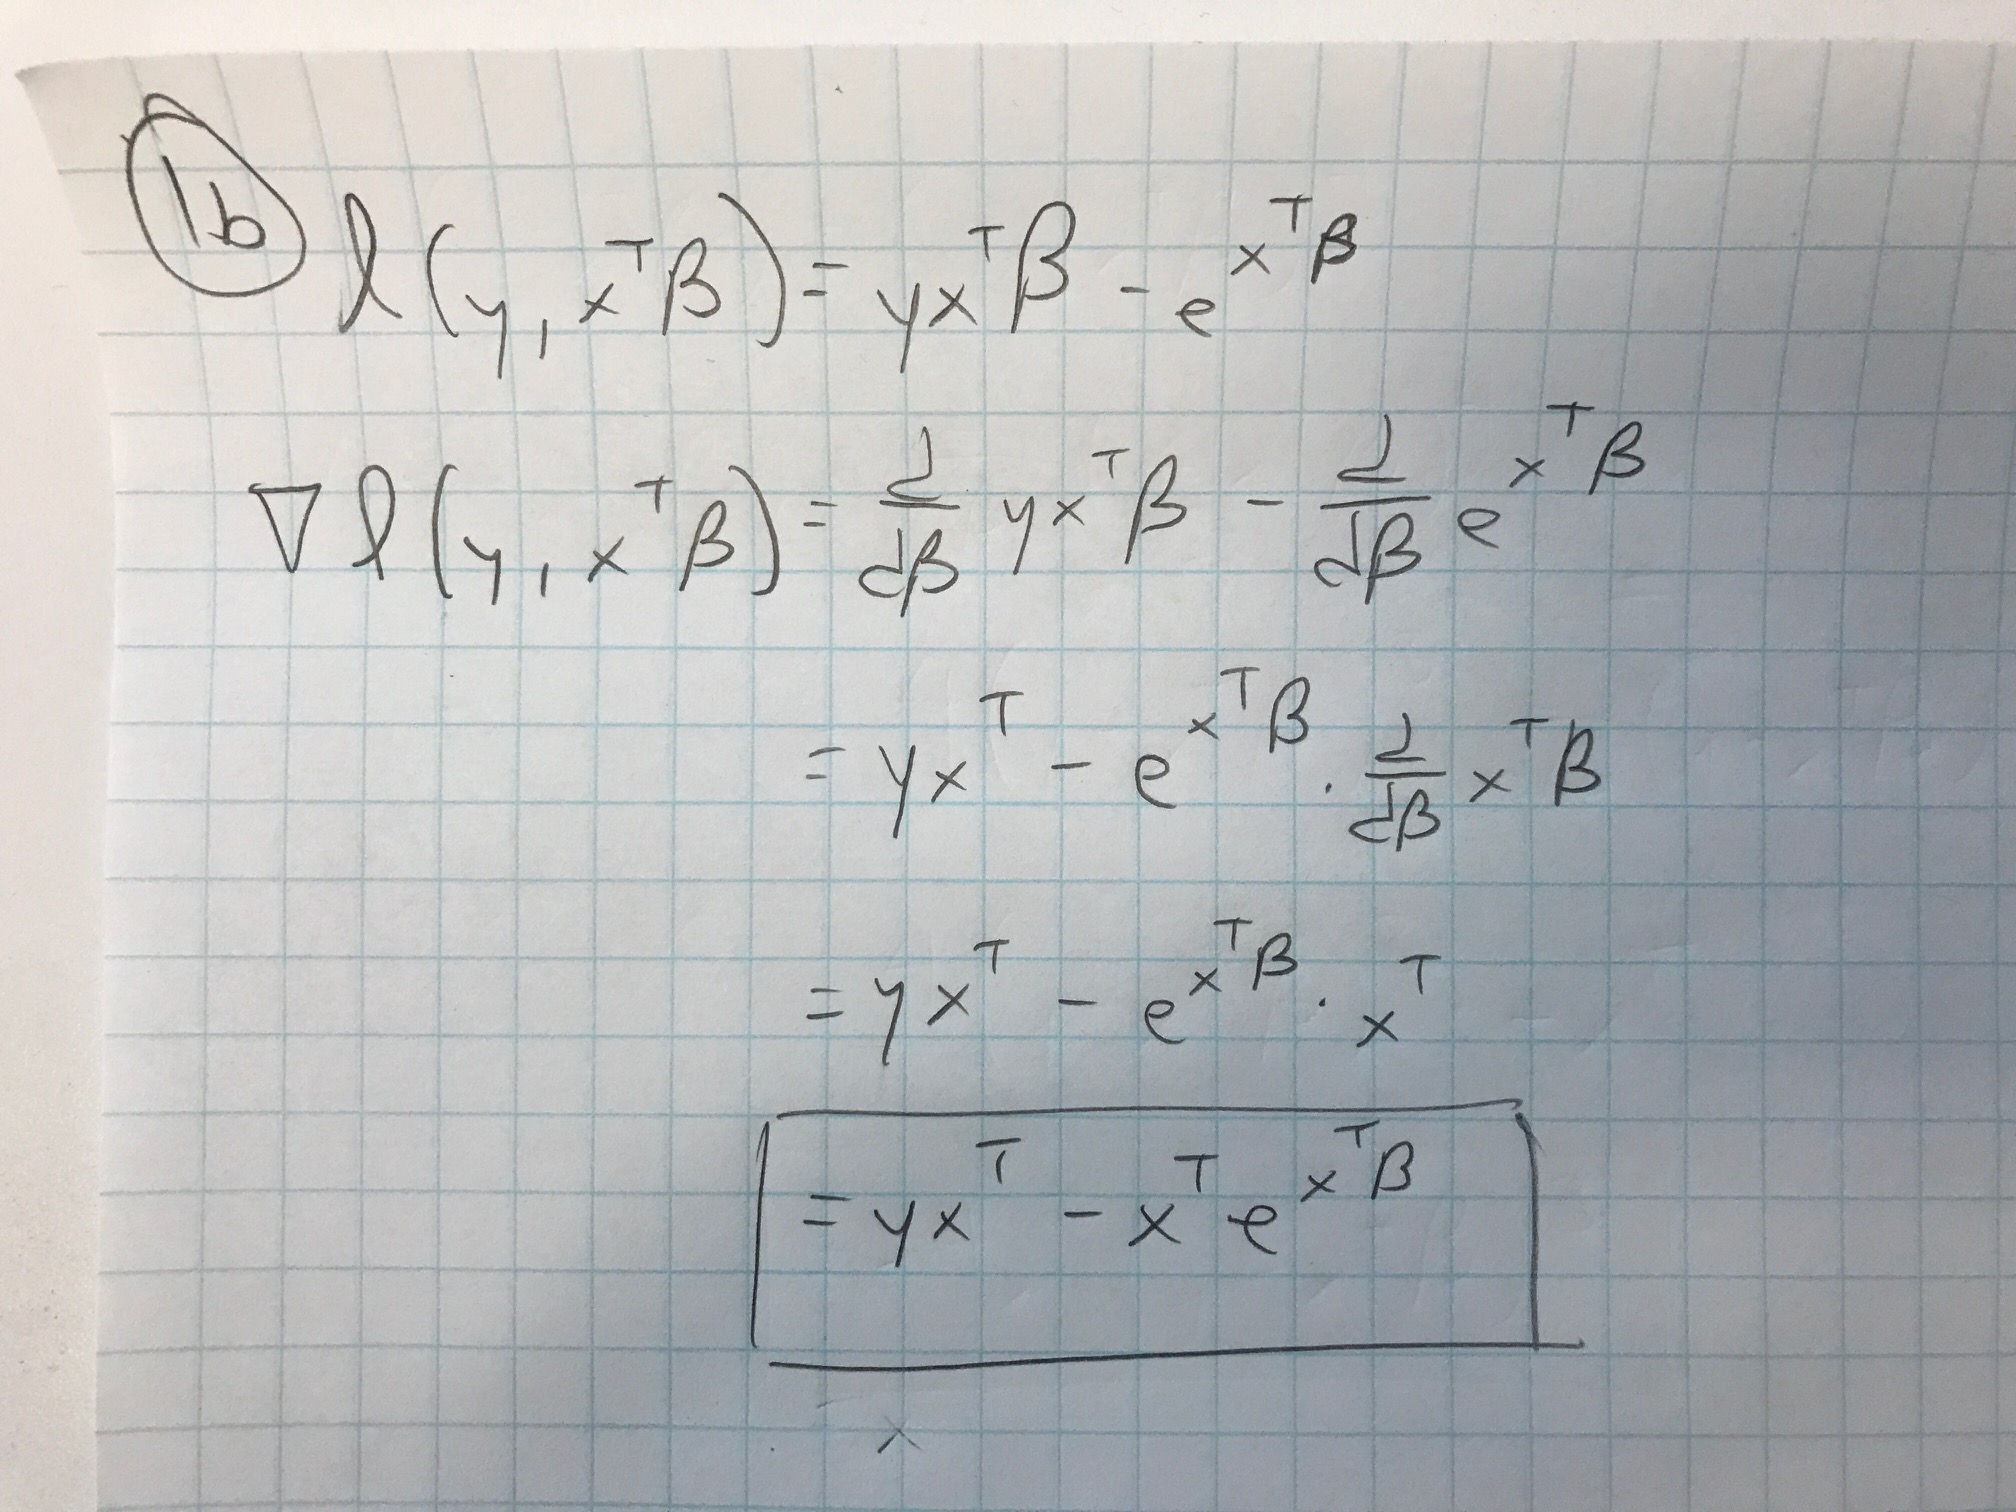 1b l(y, xᵀβ) = yxᵀβ - e^{xᵀβ}
∇l(y, xᵀβ) = d/dβ yxᵀβ - d/dβ e^{xᵀβ}
= yxᵀ - e^{xᵀβ} · d/dβ xᵀβ
= yxᵀ - e^{xᵀβ} · xᵀ
= yxᵀ - xᵀe^{xᵀβ}
x